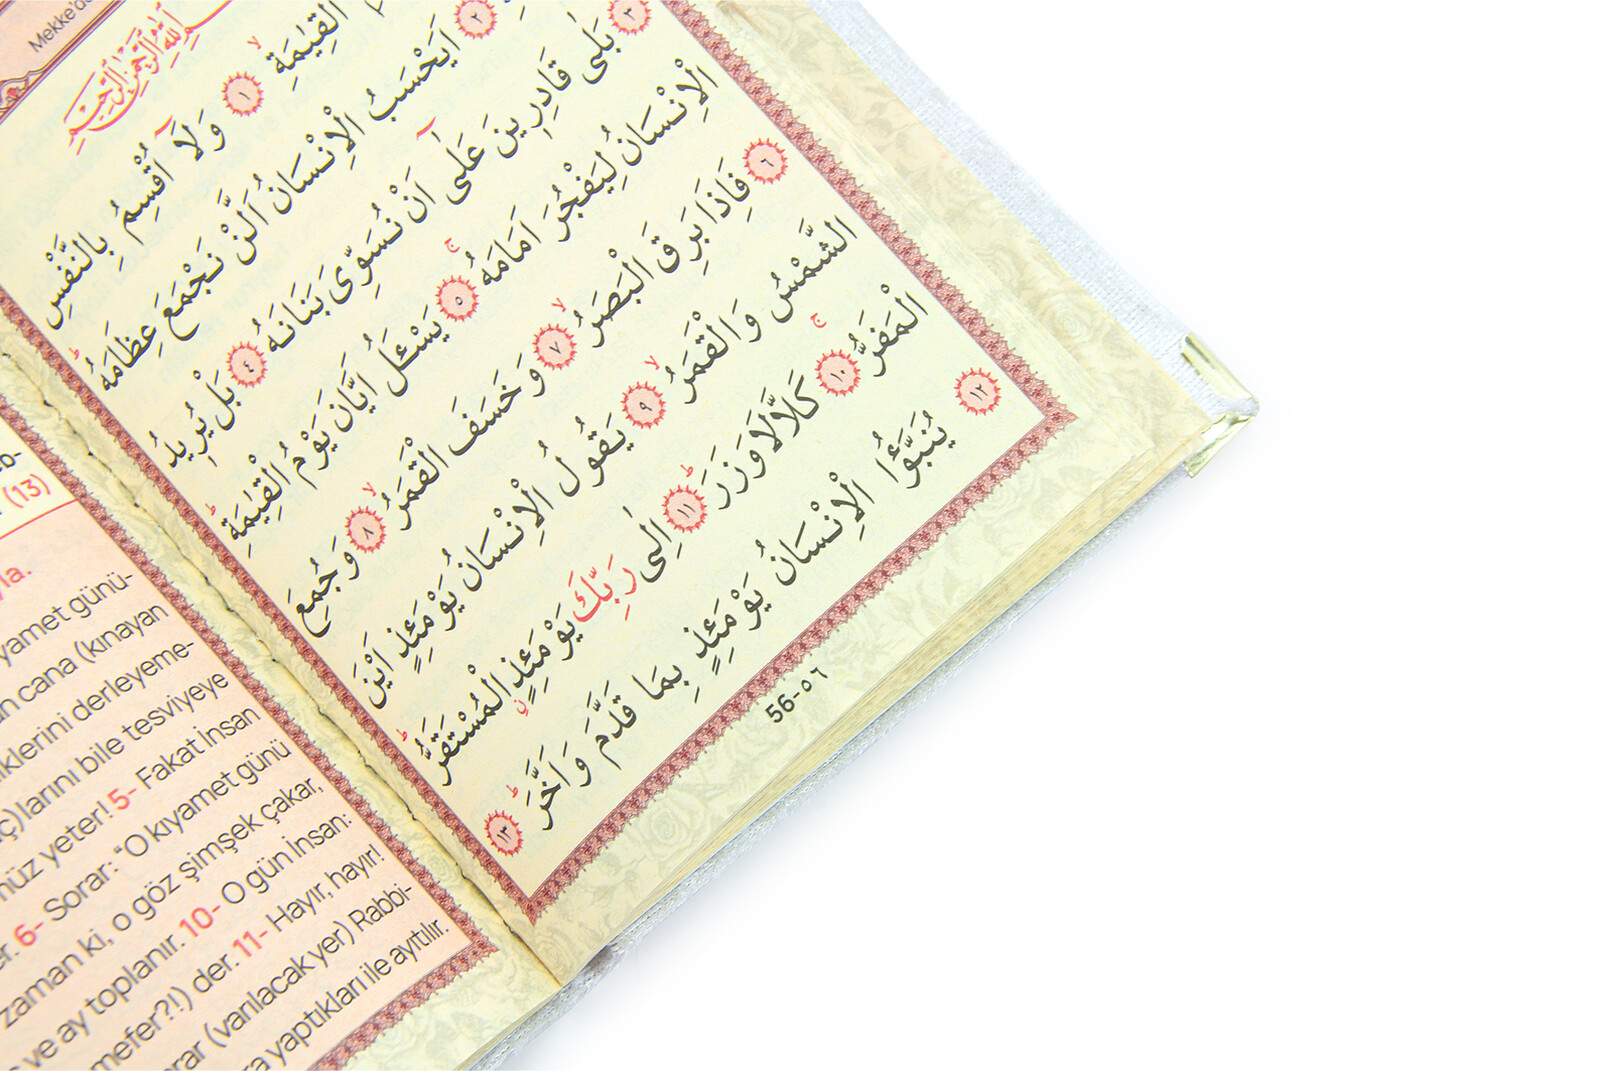 اللّٰهِ الرَّحْمٰنِ الرَّحِيمِ
الْقِيٰمَةِ ١ وَلَآ اُقْسِمُ بِالنَّفْسِ
٢ اَيَحْسَبُ الْاِنْسَانُ اَلَّنْ نَجْمَعَ عِظَامَهُ
٣ بَلٰى قَادِر۪ينَ عَلٰٓى اَنْ نُسَوِّىَ بَنَانَهُ ٤ بَلْ يُر۪يدُ
الْاِنْسَانُ لِيَفْجُرَ اَمَامَهُ ٥ يَسْـَٔلُ اَيَّانَ يَوْمُ الْقِيٰمَةِ
٦ فَاِذَا بَرِقَ الْبَصَرُ ٧ وَخَسَفَ الْقَمَرُ ٨ وَجُمِعَ
الشَّمْسُ وَالْقَمَرُ ٩ يَقُولُ الْاِنْسَانُ يَوْمَئِذٍ اَيْنَ
الْمَفَرُّ ١٠ كَلَّا لَا وَزَرَ ١١ اِلٰى رَبِّكَ يَوْمَئِذٍ الْمُسْتَقَرُّ
١٢ يُنَبَّؤُا الْاِنْسَانُ يَوْمَئِذٍ بِمَا قَدَّمَ وَاَخَّرَ ١٣
56-٥٦
(13)
yamet günü-
cana (kınayan
iklerini derleyeme-
larını bile tesviyeye
müz yeter! 5- Fakat İnsan
6- Sorar: “O kıyamet günü
zaman ki, o göz şimşek çakar,
ve ay toplanır. 10- O gün İnsan:
mefer?!) der. 11- Hayır, hayır!
rar (varılacak yer) Rabbi-
ra yaptıkları ile ayrtılır.